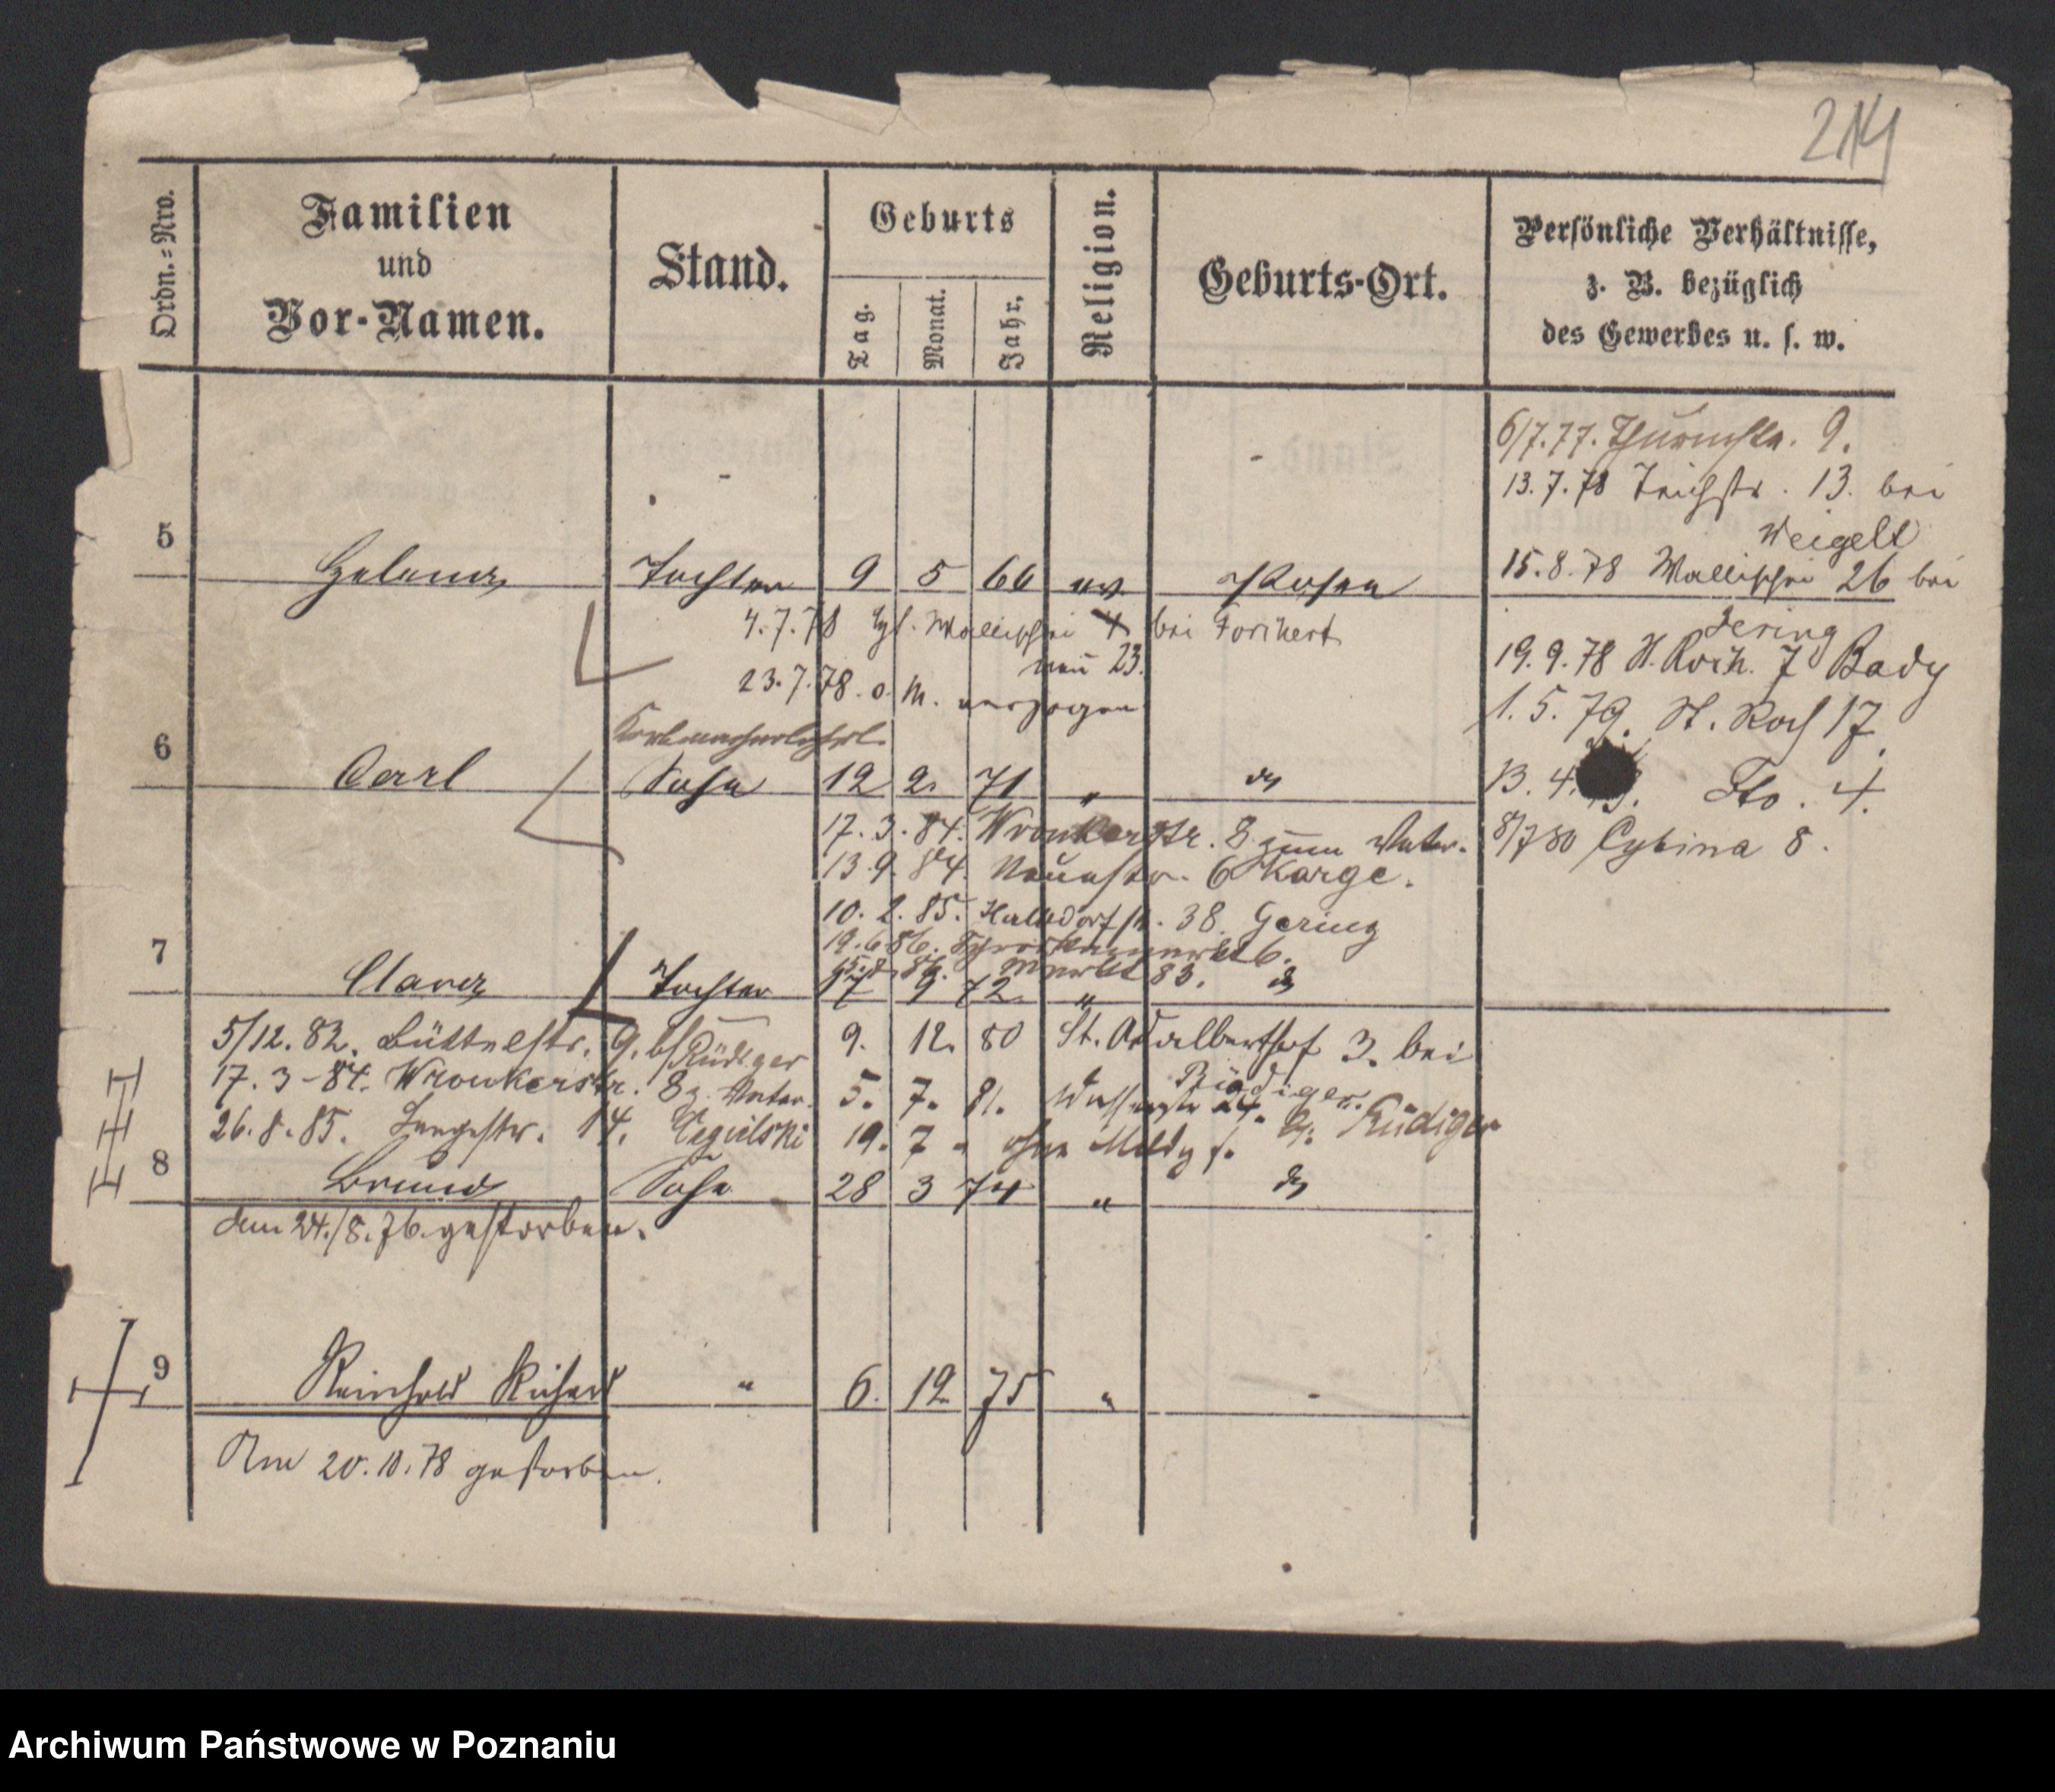 214
Ordn.=Nro.
Familien
und
Vor-Namen.
Stand.
Geburts
Tag.
Monat.
Jahr.
Religion.
Geburts-Ort.
Persönliche Verhältnisse,
z. B. bezüglich
des Gewerbes u. s. w.
6/7.77. Thurmstr. 9.
13.7.78 Teichstr. 13. bei
Weigelt
15.8.78 Wallischei 26 bei
Jering
19.9.78 St. Roch. 7 Bady
1.5.79. St. Roch 17.
13.4. Sto. 4.
8/7 80 Cybina 8.
5 Helena Tochter 9 5 66 ev. Posen
4.7.78 Wallischei bei
neu 23.
23.7.78. o. M. verzogen
6 Carl Sohn 12 2. 71 "
17.3.84. Wronkerstr. 8 zum Vater.
13.9.84. Neuestr. 6 Karge.
10.2.85. Halbdorfstr. 38. Gering
Markt 83.
7 Clara Tochter 17 9 72 "
5/12.82. Büttelstr. 9. b/Rüdiger 9. 12. 80 St. Adalberthof 3. bei
Rüdiger.
17.3-84. Wronkerstr. 8 z. Vater. 5. 7. 81. Wasserstr 24. Rüdiger
26.8.85. Langestr. 14. Cegielski 19. 7 " ohne Meldg
8 Bruno Sohn 28 3 74 "
den 24./8.76. gestorben.
9 Reinhold Richard " 6. 12 75 " -
Am 20.10.78 gestorben.
Archiwum Państwowe w Poznaniu